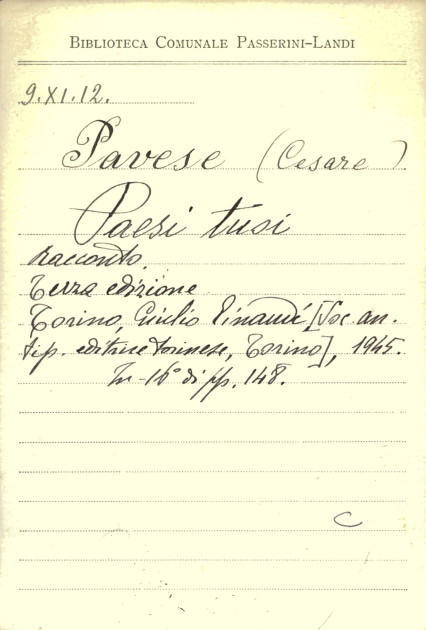 BIBLIOTECA COMUNALE PASSERINI-LANDI
9.XI.12.
Pavese (Cesare)
Paesi tuoi
Racconto.
Terza edizione
Torino, Giulio Einaudi [Soc. an.
tip. editrice torinese, Torino], 1945.
In-16° di pp. 148.
C